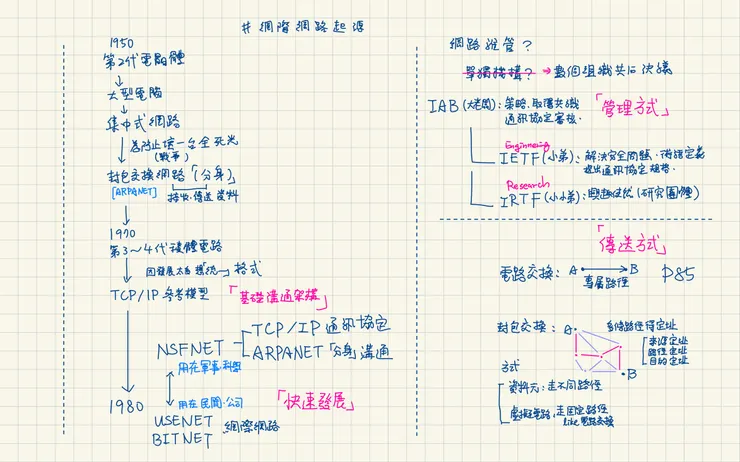 # 網際網路起源
1950
第2代電晶體
大型電腦
集中式網路
為防止壞一台全死光
(戰爭)
封包交換網路「分身」
[ARPANET] 接收、傳送資料
1970
第3~4代積體電路
因發展太多種統一格式
TCP/IP參考模型 「基礎溝通架構」
NSFNET
TCP/IP通訊協定
ARPANET「分身」溝通
用在軍事、科學
1980
用在民間、公司 「快速發展」
USENET
BITNET
網際網路
網路誰管?
單獨機構? → 整個組織共同決議
IAB(大老闆):策略、取得共識
通訊協定審核. 「管理方式」
Engineering
IETF(小弟):解決安全問題、術語定義
提出通訊協定規格.
Research
IRTF(小小弟):興趣使然(研究團體)
「傳送方式」
電路交換: A B P85
專屬路徑
封包交換: A 多條路徑得定址
來源定址
路徑定址
目的定址
B
方式
資料元:走不同路徑
虛擬電路:走固定路徑
like電路交換